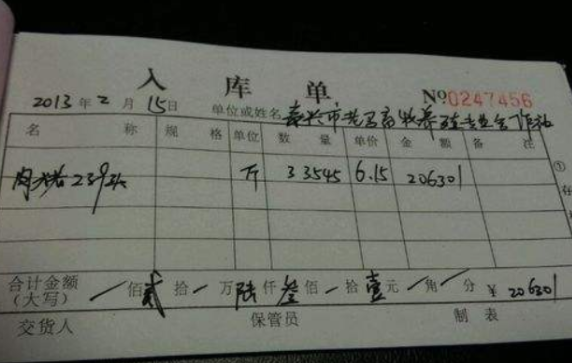 入库单
2013年2月15日 单位或姓名 泰兴市 养殖专业合作社 No 0247456
名称 规格 单位 数量 单价 金额 备注
肉大猪239头 斤 33545 6.15 206301
①
合计金额(大写) / 佰 贰 拾 / 万 陆 仟 叁 佰 / 拾 壹 元 / 角 / 分 ¥ 206301
交货人 保管员 制表